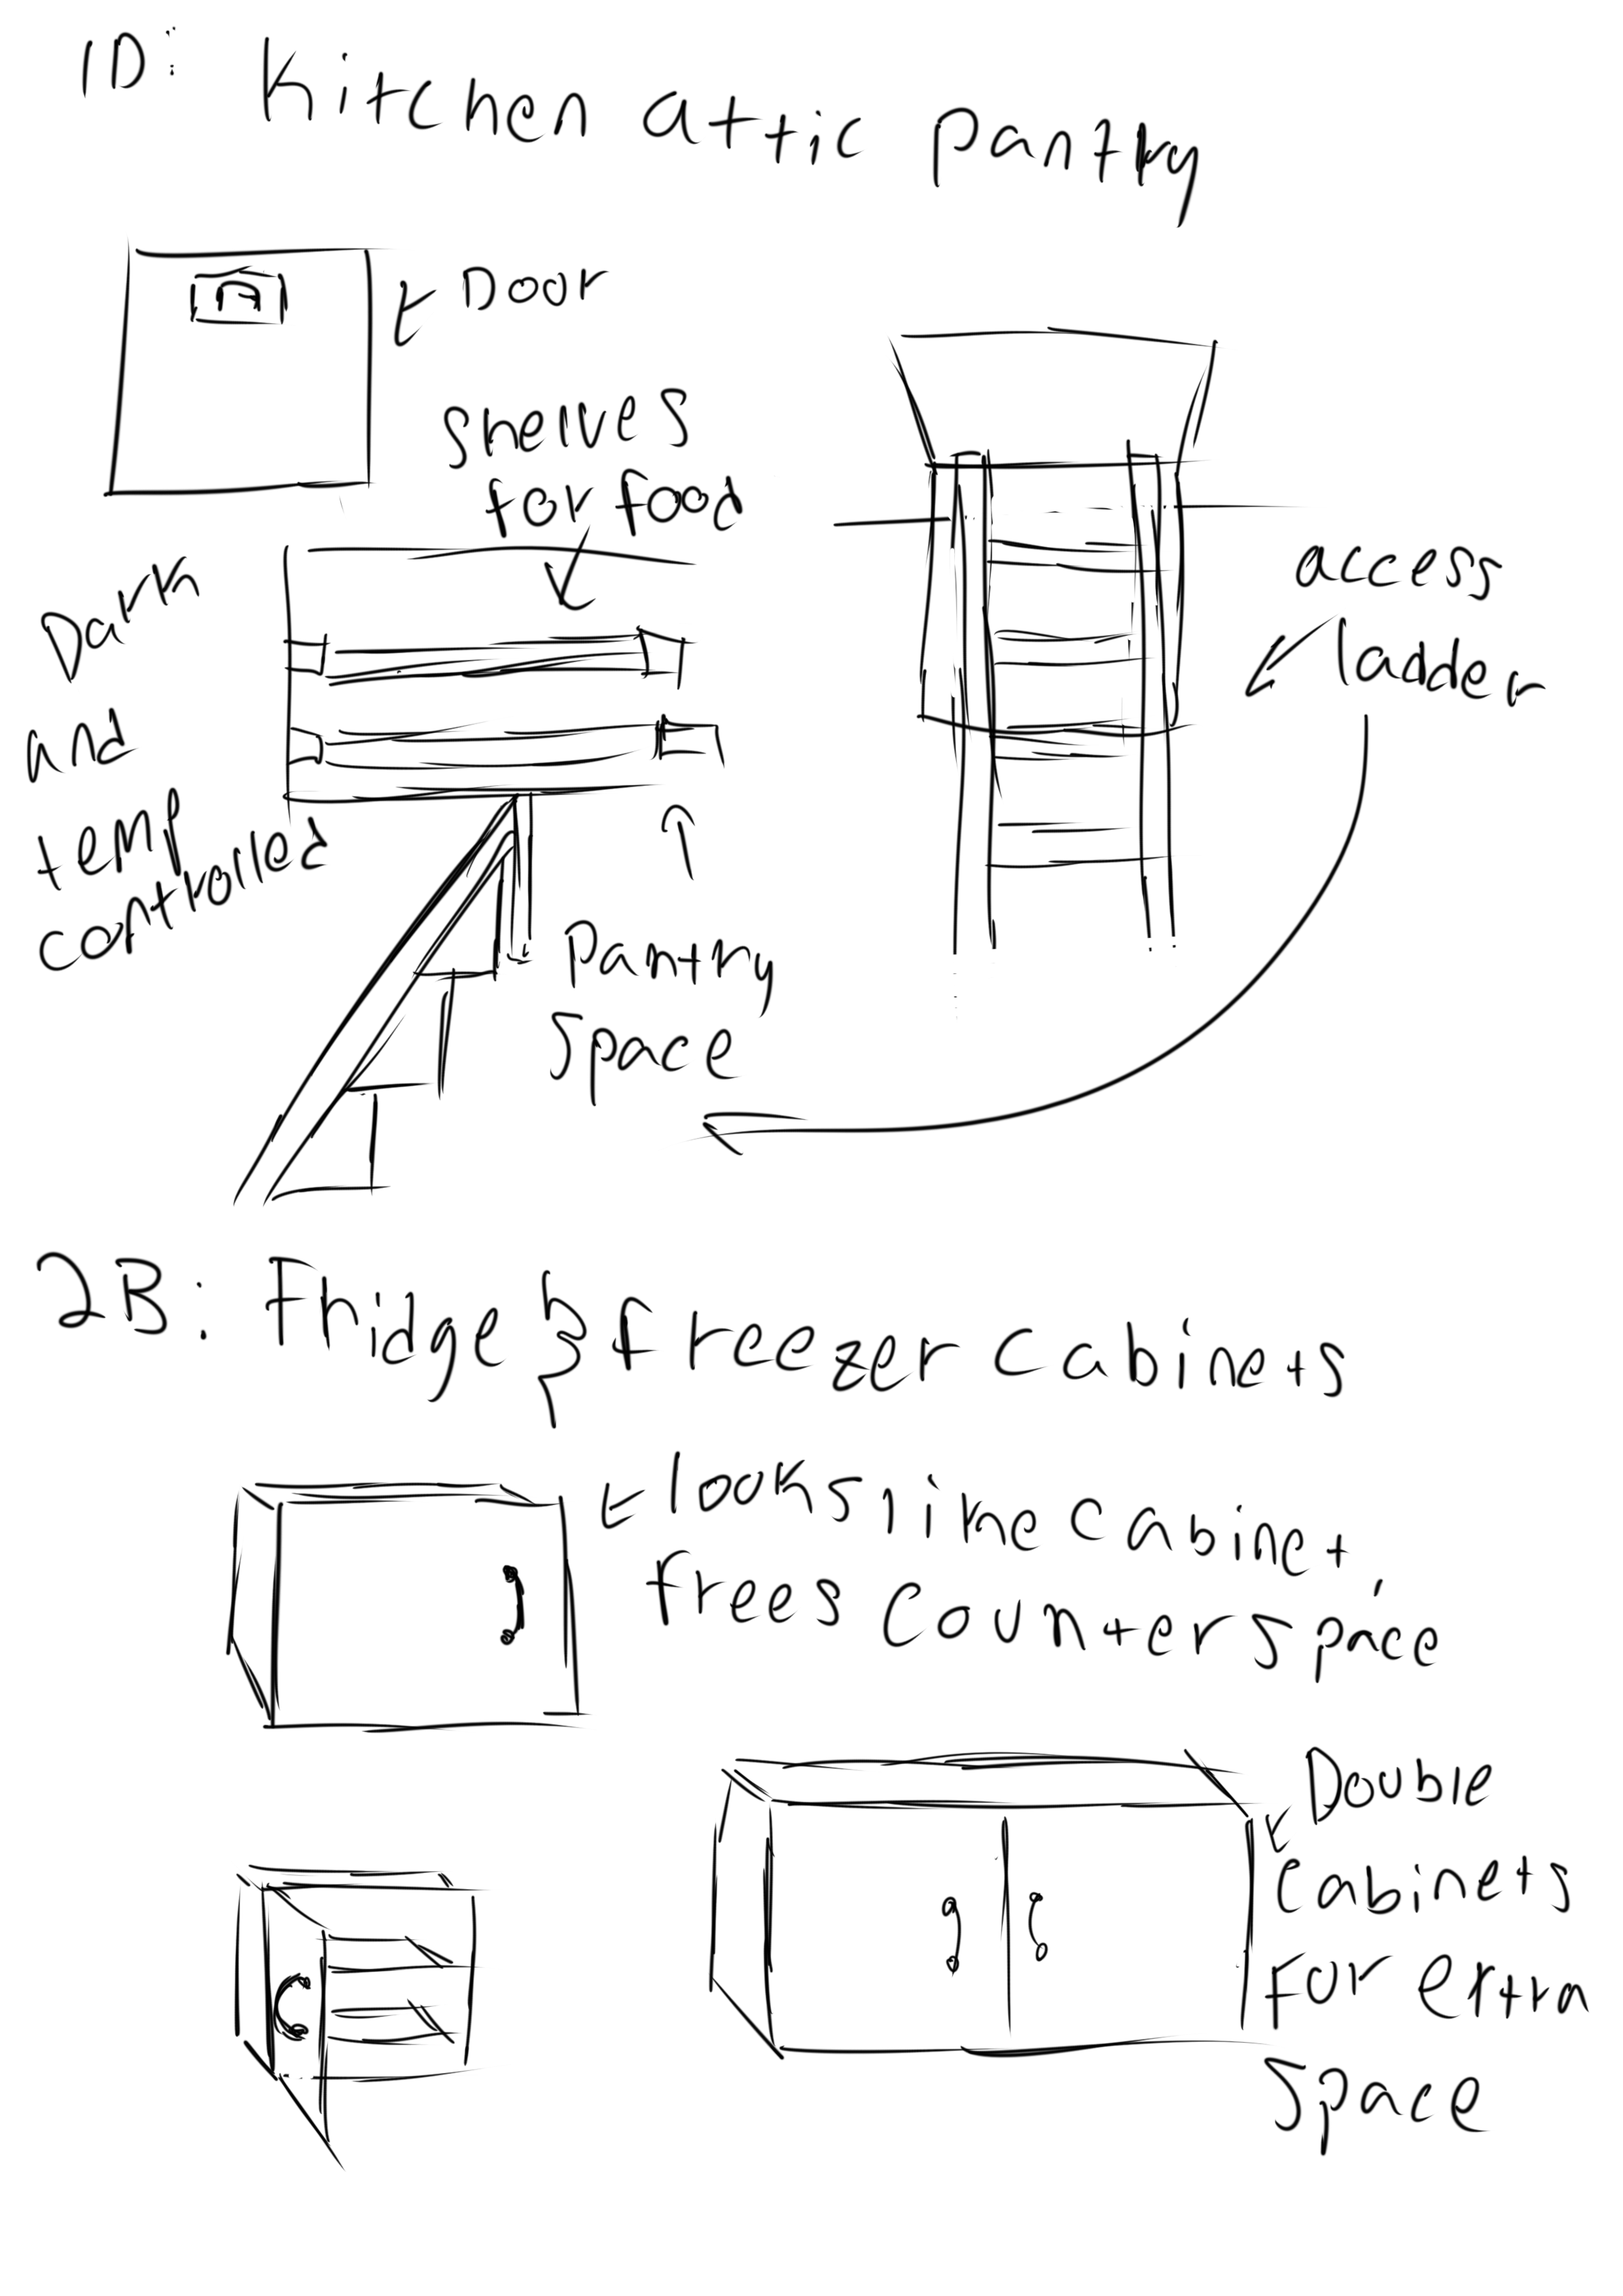 1D: Kitchen attic pantry
Door
shelves
for food
Dark
and
temp
controlled
access
ladder
Pantry
Space
2B: Fridge & freezer cabinets
looks like cabinet,
frees counter space
Double
cabinets
For extra
Space